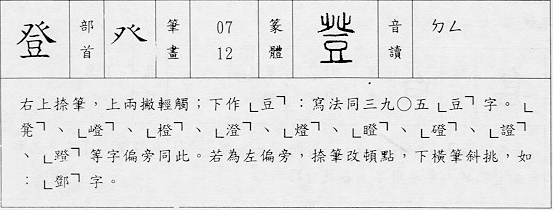 登 部首 癶 筆畫 07 12 篆體 豋 音讀 ㄉㄥ
右上捺筆，上兩撇輕觸；下作「豆」：寫法同三九〇五「豆」字。「
凳」、「嶝」、「橙」、「澄」、「燈」、「瞪」、「磴」、「證」
、「蹬」等字偏旁同此。若為左偏旁，捺筆改頓點，下橫筆斜挑，如
：「鄧」字。